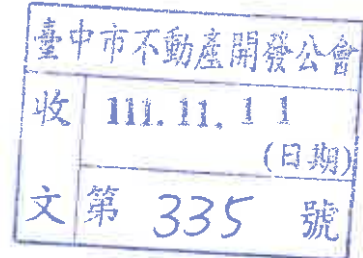 臺中市不動產開發公會
收 111.11.11
(日期)
文 第 335 號